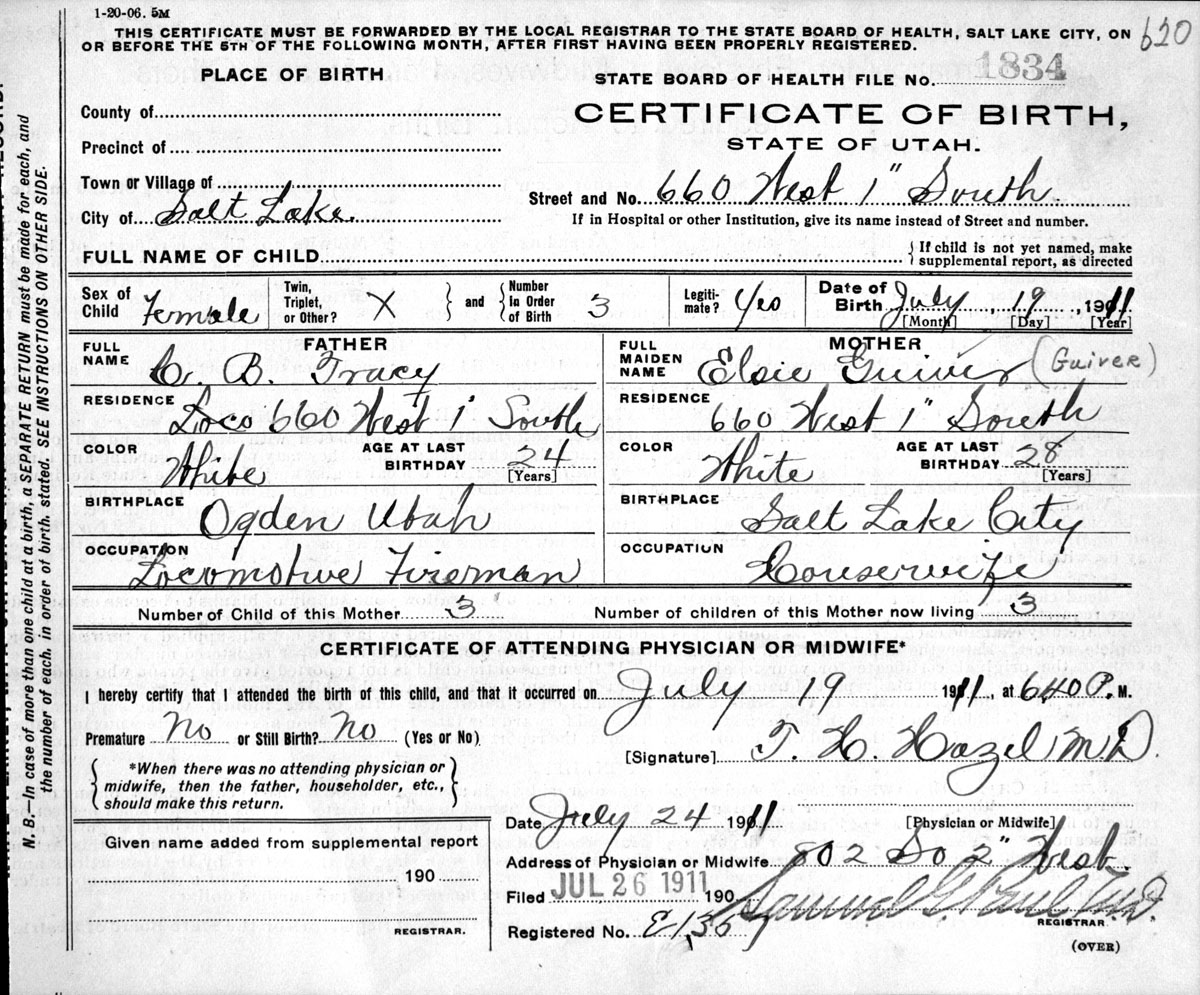 1-20-06. 5M
THIS CERTIFICATE MUST BE FORWARDED BY THE LOCAL REGISTRAR TO THE STATE BOARD OF HEALTH, SALT LAKE CITY, ON
OR BEFORE THE 5TH OF THE FOLLOWING MONTH, AFTER FIRST HAVING BEEN PROPERLY REGISTERED.
620
PLACE OF BIRTH
STATE BOARD OF HEALTH FILE No. 1834
County of
CERTIFICATE OF BIRTH,
Precinct of
STATE OF UTAH.
Town or Village of
Street and No. 660 West 1" South
City of Salt Lake.
If in Hospital or other Institution, give its name instead of Street and number.
FULL NAME OF CHILD
{ If child is not yet named, make
supplemental report, as directed
Sex of Child Female
Twin, Triplet, or Other? X } and { Number In Order of Birth 3
Legitimate? Yes
Date of Birth July 19, 1911
[Month] [Day] [Year]
FATHER
FULL NAME C. B. Tracy
RESIDENCE Loco 660 West 1" South
COLOR White
AGE AT LAST BIRTHDAY 24 [Years]
BIRTHPLACE Ogden Utah
OCCUPATION Locomotive Fireman
MOTHER
FULL MAIDEN NAME Elsie Guiver (Guiver)
RESIDENCE 660 West 1" South
COLOR White
AGE AT LAST BIRTHDAY 28 [Years]
BIRTHPLACE Salt Lake City
OCCUPATION Housewife
Number of Child of this Mother 3
Number of children of this Mother now living 3
CERTIFICATE OF ATTENDING PHYSICIAN OR MIDWIFE*
I hereby certify that I attended the birth of this child, and that it occurred on July 19 1911, at 640 P. M.
Premature No or Still Birth? No (Yes or No).
[Signature] T. H. Hazel M.D.
{ *When there was no attending physician or
midwife, then the father, householder, etc.,
should make this return. }
Date July 24 1911 [Physician or Midwife]
Given name added from supplemental report
Address of Physician or Midwife 802 So 2" West
190
Filed JUL 26 1911 190
Samuel G. Paul M.D.
REGISTRAR.
REGISTRAR.
Registered No. E136
(OVER)
N. B.—In case of more than one child at a birth, a SEPARATE RETURN must be made for each, and
the number of each, in order of birth, stated. SEE INSTRUCTIONS ON OTHER SIDE.